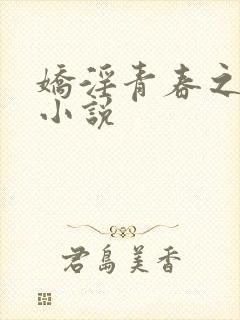 嬌淫青春之
小說
君島美香